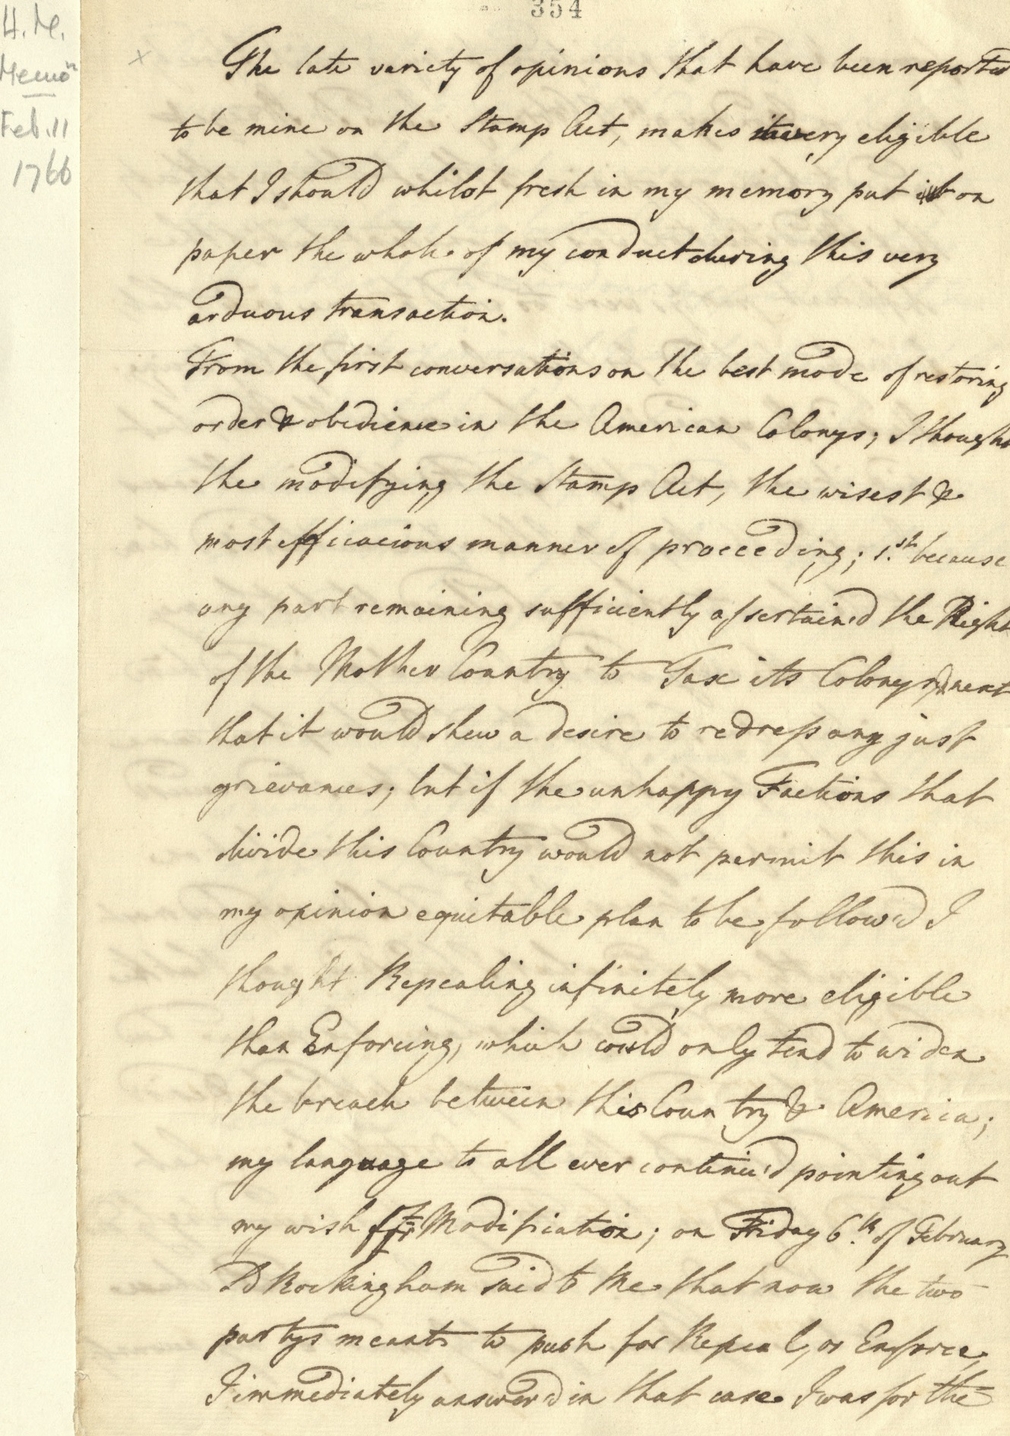 354
H. M.
Memon
Feb. 11
1766
x
The late variety of opinions that have been reported
to be mine on the Stamp Act, makes it very eligible
that I should whilst fresh in my memory put it on
paper the whole of my conduct during this very
arduous transaction.
From the first conversations on the best mode of restoring
order & obedience in the American Colonys; I thought
the modifying the Stamp Act, the wisest &
most efficacious manner of proceeding; 1.st because
any part remaining sufficiently assertain'd the Right
of the Mother Country to Tax its Colonys & next
that it would shew a desire to redress any just
grievances; but if the unhappy Factions that
divide this Country would not permit this in
my opinion equitable plan to be follow'd I
thought Repealing infinitely more eligible
than Enforcing, which could only tend to widen
the breach between this Country & America;
my language to all ever continued pointing out
my wish for Modification; on Friday 6.th of February
Ld Rockingham said to me that now the two
partys meant to push for Repeal, or Enforce,
I immediately answer'd in that case I was for the